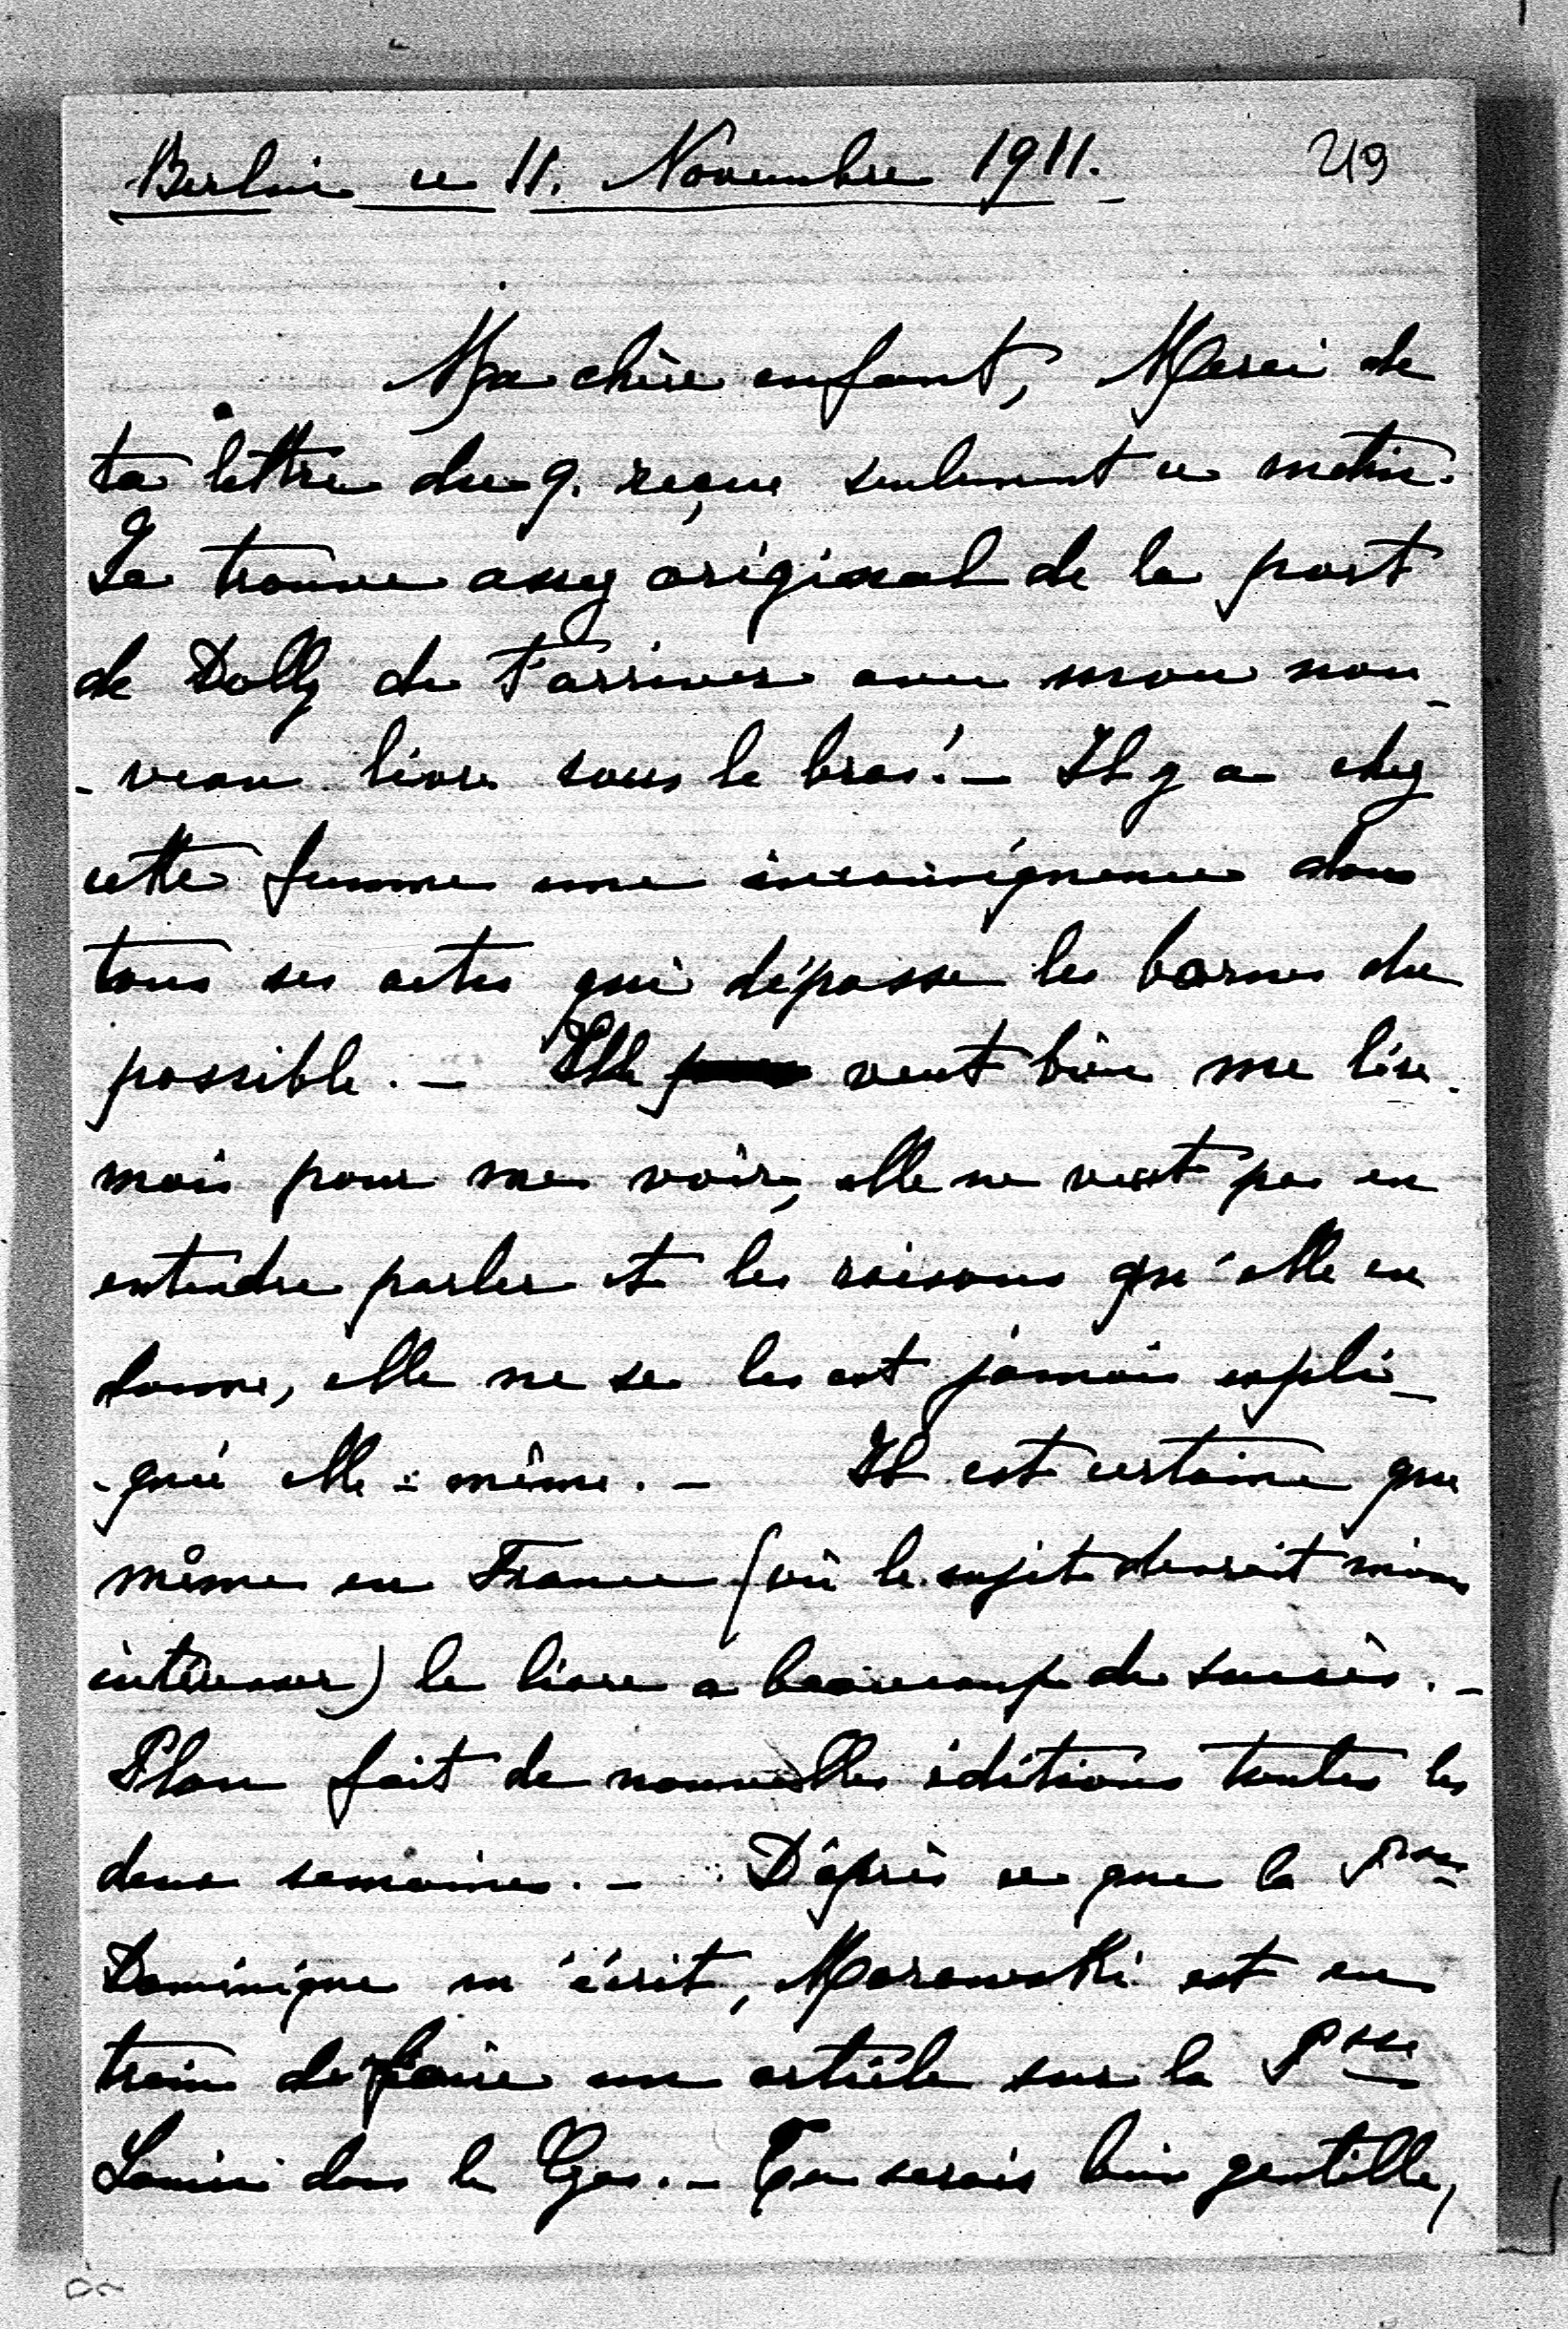 Berlin ce 11. Novembre 1911. 49
Ma chère enfant, Merci de
ta lettre du 9. reçue seulement ce matin.
Je trouve assez original de la part
de Dolly de t'arriver avec mon nou_
- veau livre sous le bras! _ Il y a chez
cette femme une inconséquence dans
tous ses actes qui dépasse les bornes du
possible. _ Elle veut bien me lire.
mais pour me voir, elle ne veut pas en
entendre parler et les raisons qu'elle en
donne, elle ne se les est jamais expli_
- qué elle = même. _ Il est certain que
même en France (où le sujet devrait moins
intéresser) le livre a beaucoup de succès. _
Plon fait de nouvelles éditions toutes les
deux semaines. _ D'après ce que la Psse
Dominique m'écrit, Morawski est en
train de faire un article sur la Psse
dans le Czas. _ Tu serais bien gentille,